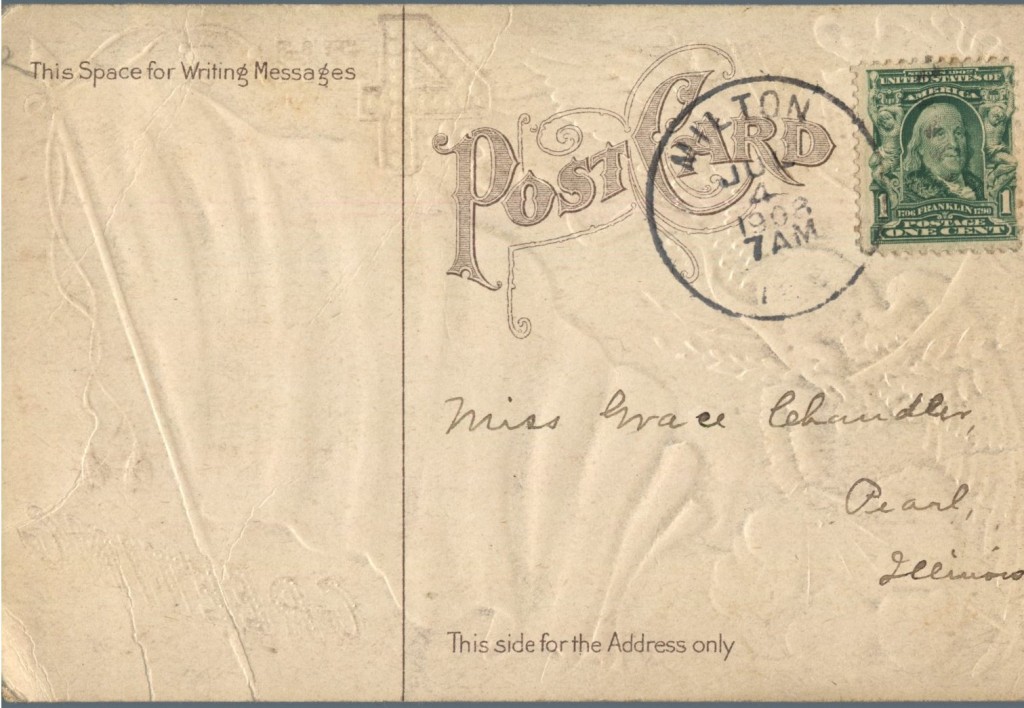 This Space for Writing Messages
POST CARD
MILTON
JUL
4
1908
7 AM
UNITED STATES OF
AMERICA
1 1706 FRANKLIN 1790 1
POSTAGE
ONE CENT
Miss Grace Chandler,
Pearl,
Illinois
This side for the Address only